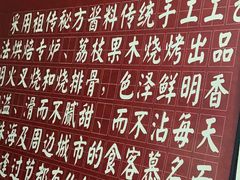 采用祖传秘方酱料传统手工工
法烘焙专炉、荔枝果木烧烤出品
明火叉烧和烧排骨，色泽鲜明香
溢、滑而不腻甜、而不沾每天
珠海及周边城市的食客慕名
逢过节都